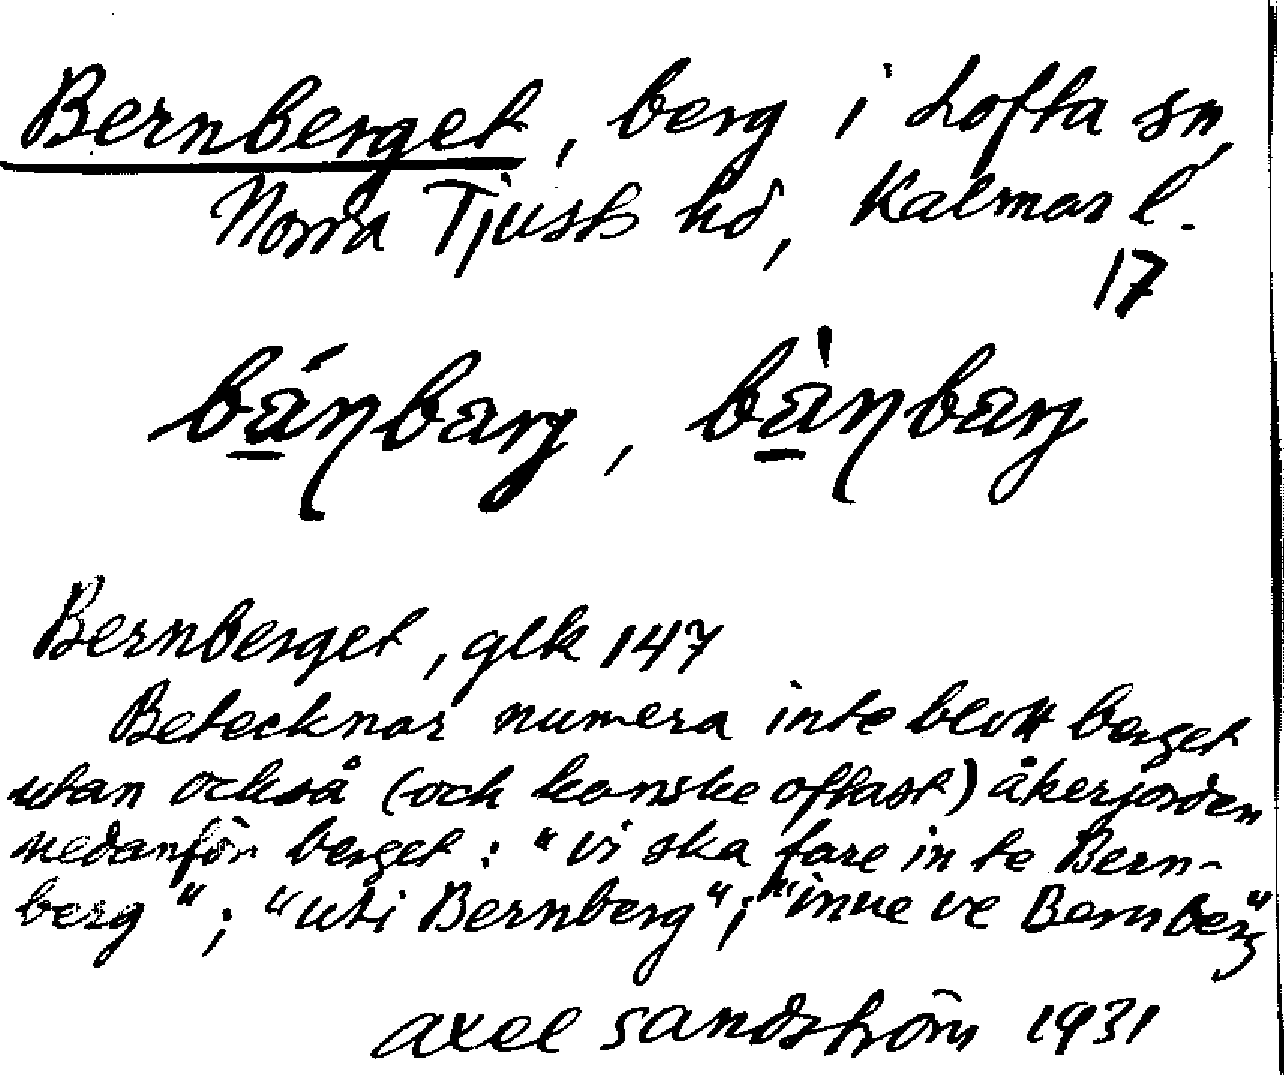 Bernberget, berg i Lofta sn,
Norra Tjusts hd, Kalmar l.
17
bá̱ꞃbarg, bà̱ꞃbarg
Bernberget, glk 147
Betecknar numera inte blott berget
utan också (och kanske oftast) åkerjorden
nedanför berget: "vi ska fare in te Bern-
berg"; "uti Bernberg"; "inne ve Bernberg"
Axel Sandström 1931